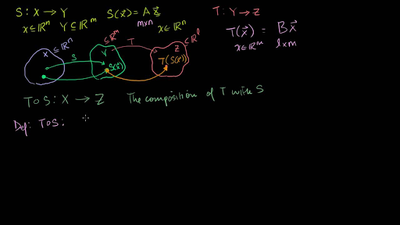 S: X → Y S(x⃗) = A x⃗ T: Y → Z
x ∈ ℝⁿ Y ⊆ ℝᵐ m×n x ∈ ℝⁿ T(x⃗) = B x⃗
x⃗ ∈ ℝᵐ l×m
X ⊆ ℝⁿ S Y ⊆ ℝᵐ T Z ⊆ ℝˡ
S(x⃗) T(S(x⃗))
T∘S: X → Z The composition of T with S
Def: T∘S: